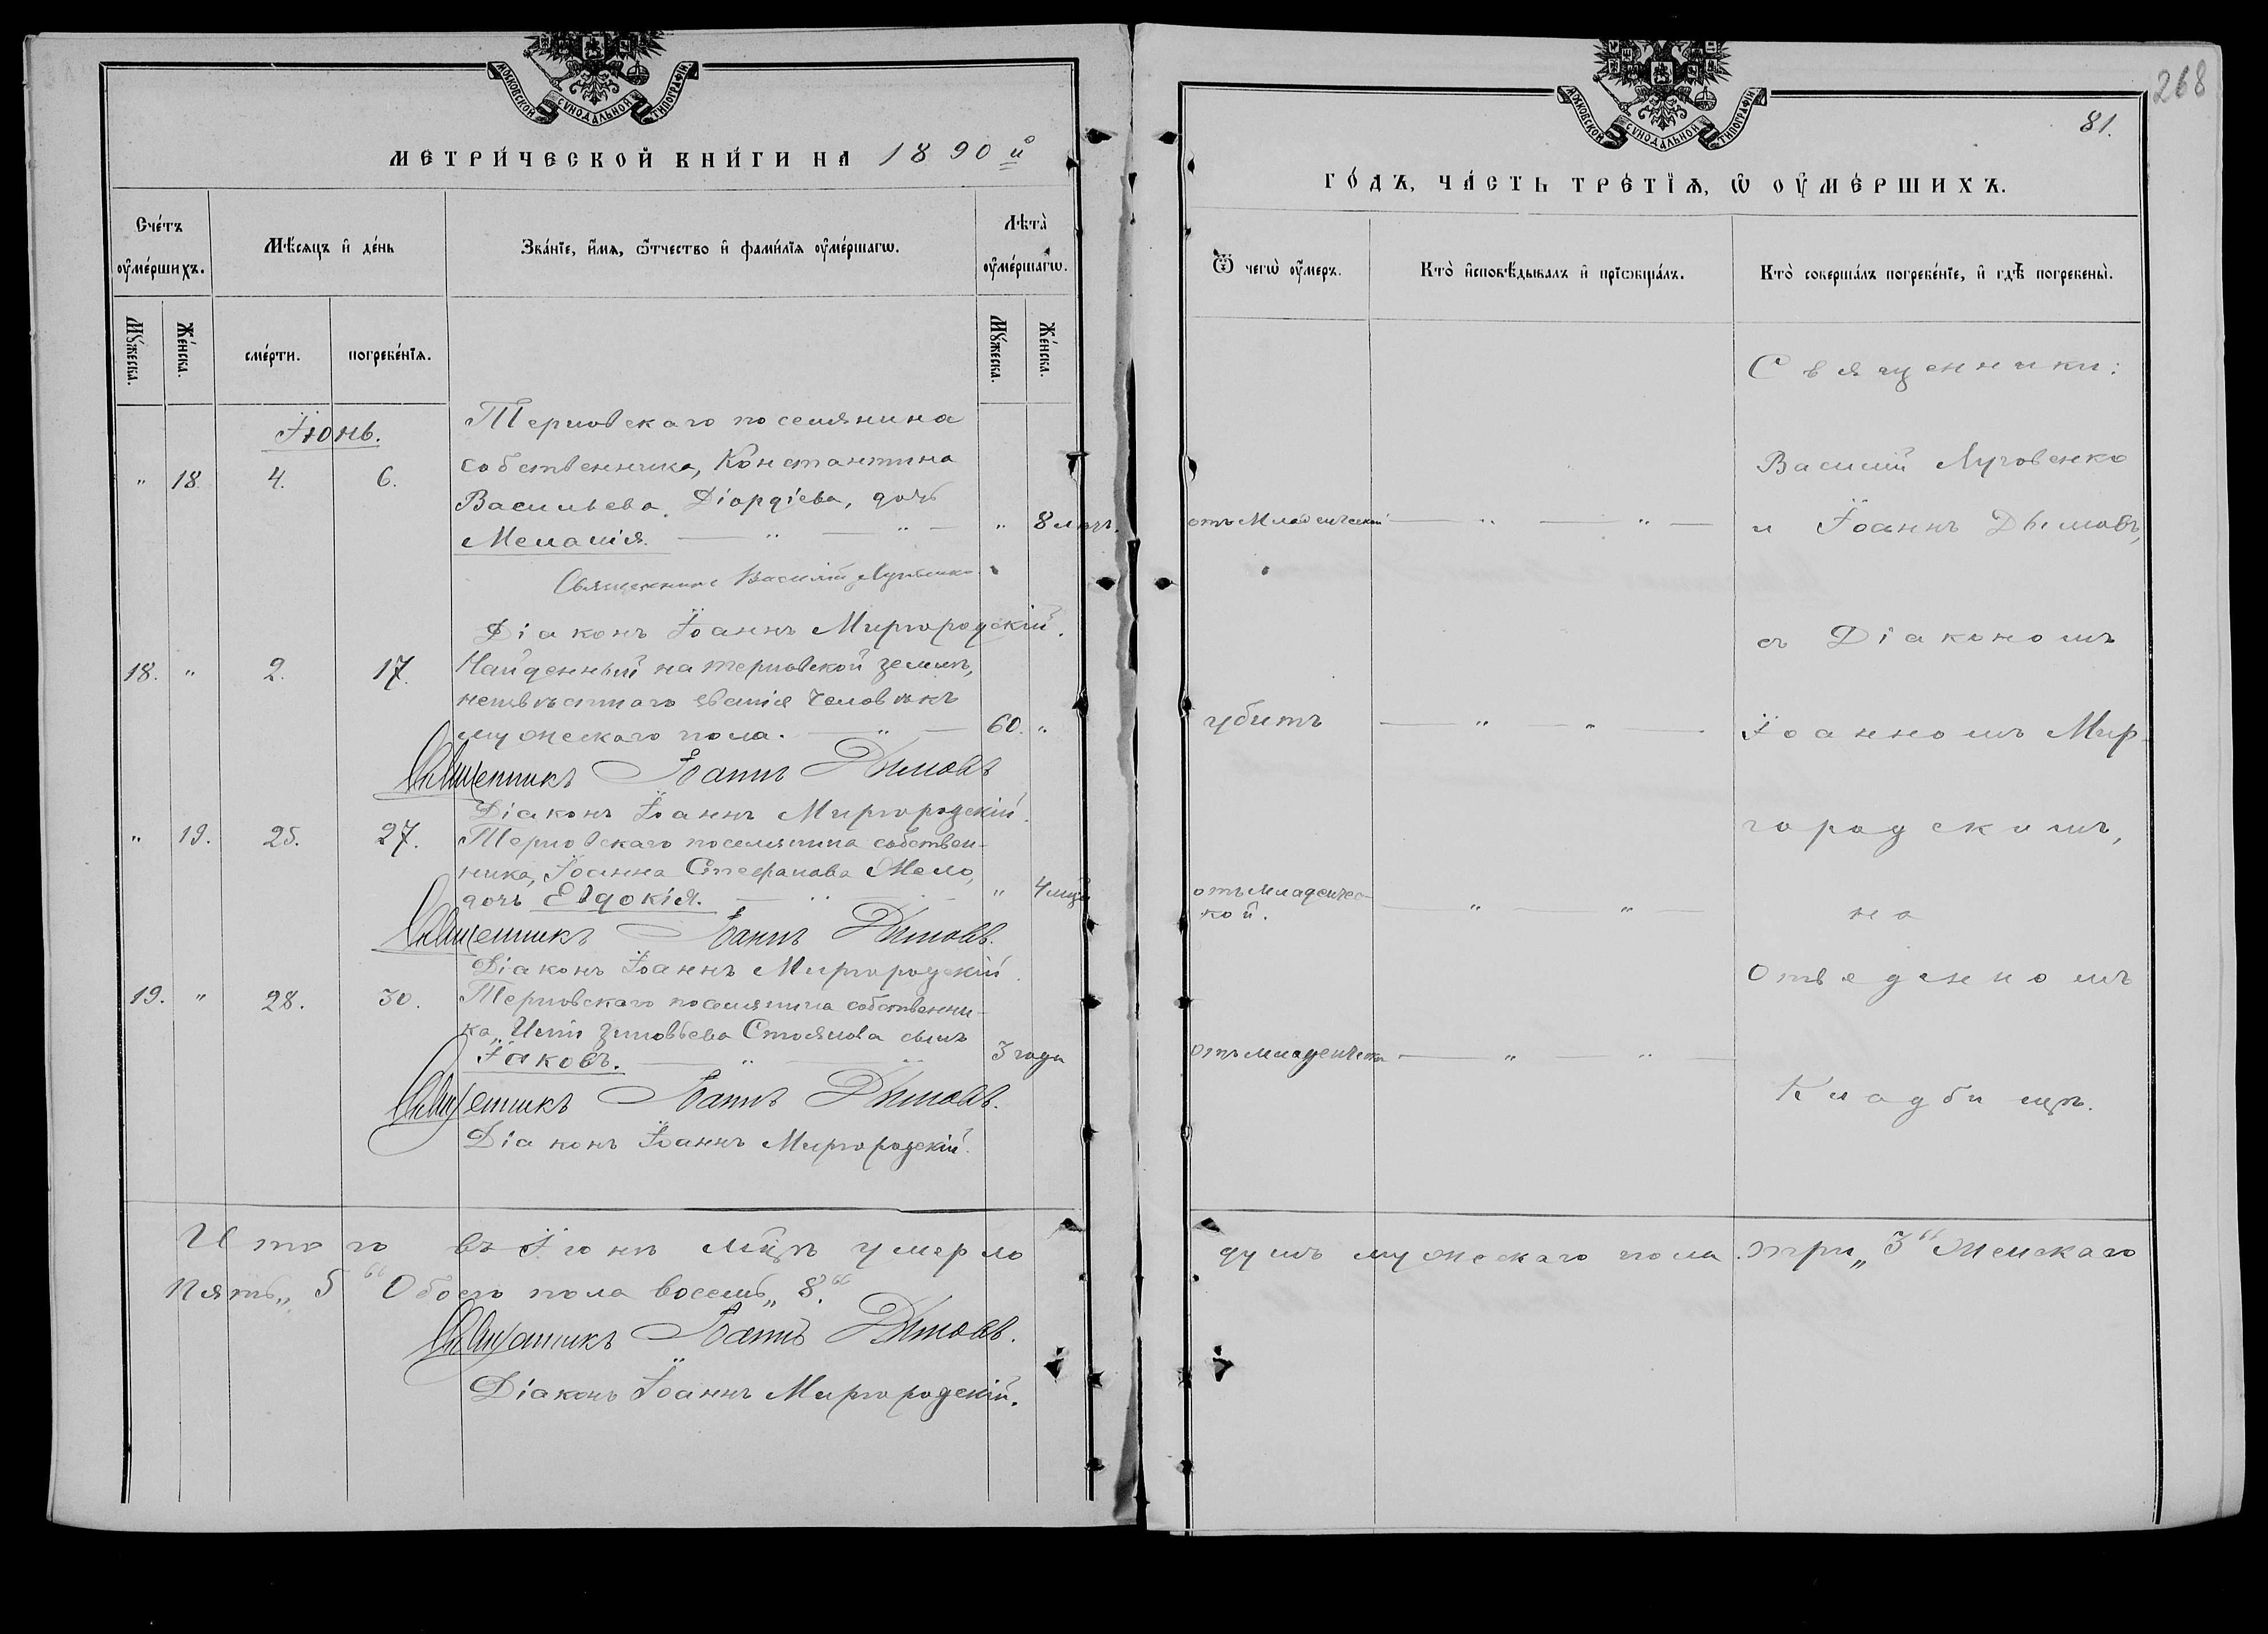 МОСКОВСКОЙ СѴНОДАЛЬНОЙ ТИПОГРАФІИ
МЕТРИ́ЧЕСКОЙ КНИ́ГИ НА 1890 й
Сче́тъ оу҆ме́ршихъ.
Мѣ́сяцъ и҆ де́нь
Зва́нїе, и҆́мя, ѻ҆́тчество и҆ фами́лїя оу҆ме́ршагѡ.
Лѣ́та оу҆ме́ршагѡ.
Мꙋ́жеска.
Же́нска.
сме́рти.
погребе́нїя.
Мꙋ́жеска.
Же́нска.
Іюнь.
Терновскаго поселянина
" 18. 4. 6. собственника, Константина
Васильева Діордіева, дочь
Меланія. " " 8 лѣтъ.
Священникъ Василій Луговенко
Діаконъ Іоаннъ Миргородскій.
18. " 2. 17. Найденный на терновской землѣ,
неизвѣстнаго званія человѣкъ
мужескаго пола. " 60. "
Священникъ Іоаннъ Дымовъ
Діаконъ Іоаннъ Миргородскій.
" 19. 25. 27. Терновскаго поселянина собствен-
ника, Іоанна Стефанова Мело,
дочь Евдокія. " " 4 мца
Священникъ Іоаннъ Дымовъ.
Діаконъ Іоаннъ Миргородскій.
19. " 28. 30. Терновскаго поселянина собственни-
ка, Иліи Зиновьева Стоянова сынъ
Іаковъ. " " 3 года
Священникъ Іоаннъ Дымовъ.
Діаконъ Іоаннъ Миргородскій.
Итого въ Іюнѣ мцѣ умерло
пять „5“ Обоего пола восемь „8.“
Священникъ Іоаннъ Дымовъ.
Діаконъ Іоаннъ Миргородскій.
268
МОСКОВСКОЙ СѴНОДАЛЬНОЙ ТИПОГРАФІИ
81.
ГО́ДЪ, ЧА́СТЬ ТРЕ́ТЇѦ, Ѽ ОУ҆МЕ́РШИХЪ.
Ѿ чегѡ̀ оу҆́меръ.
Кто̀ и҆сповѣ́дывалъ и҆ прїѡбща́лъ.
Кто̀ соверша́лъ погребе́нїе, и҆ гдѣ̀ погребены̀.
Священники:
Василій Луговенко
отъ Младенческой " " и Іоаннъ Дымовъ,
съ Діакономъ
убитъ " " Іоанномъ Мир-
городскимъ,
отъ младенчес-
кой. " " на
отведенномъ
отъ младенчества " "
Кладбищѣ.
душъ мужескаго пола три „3“ Женскаго